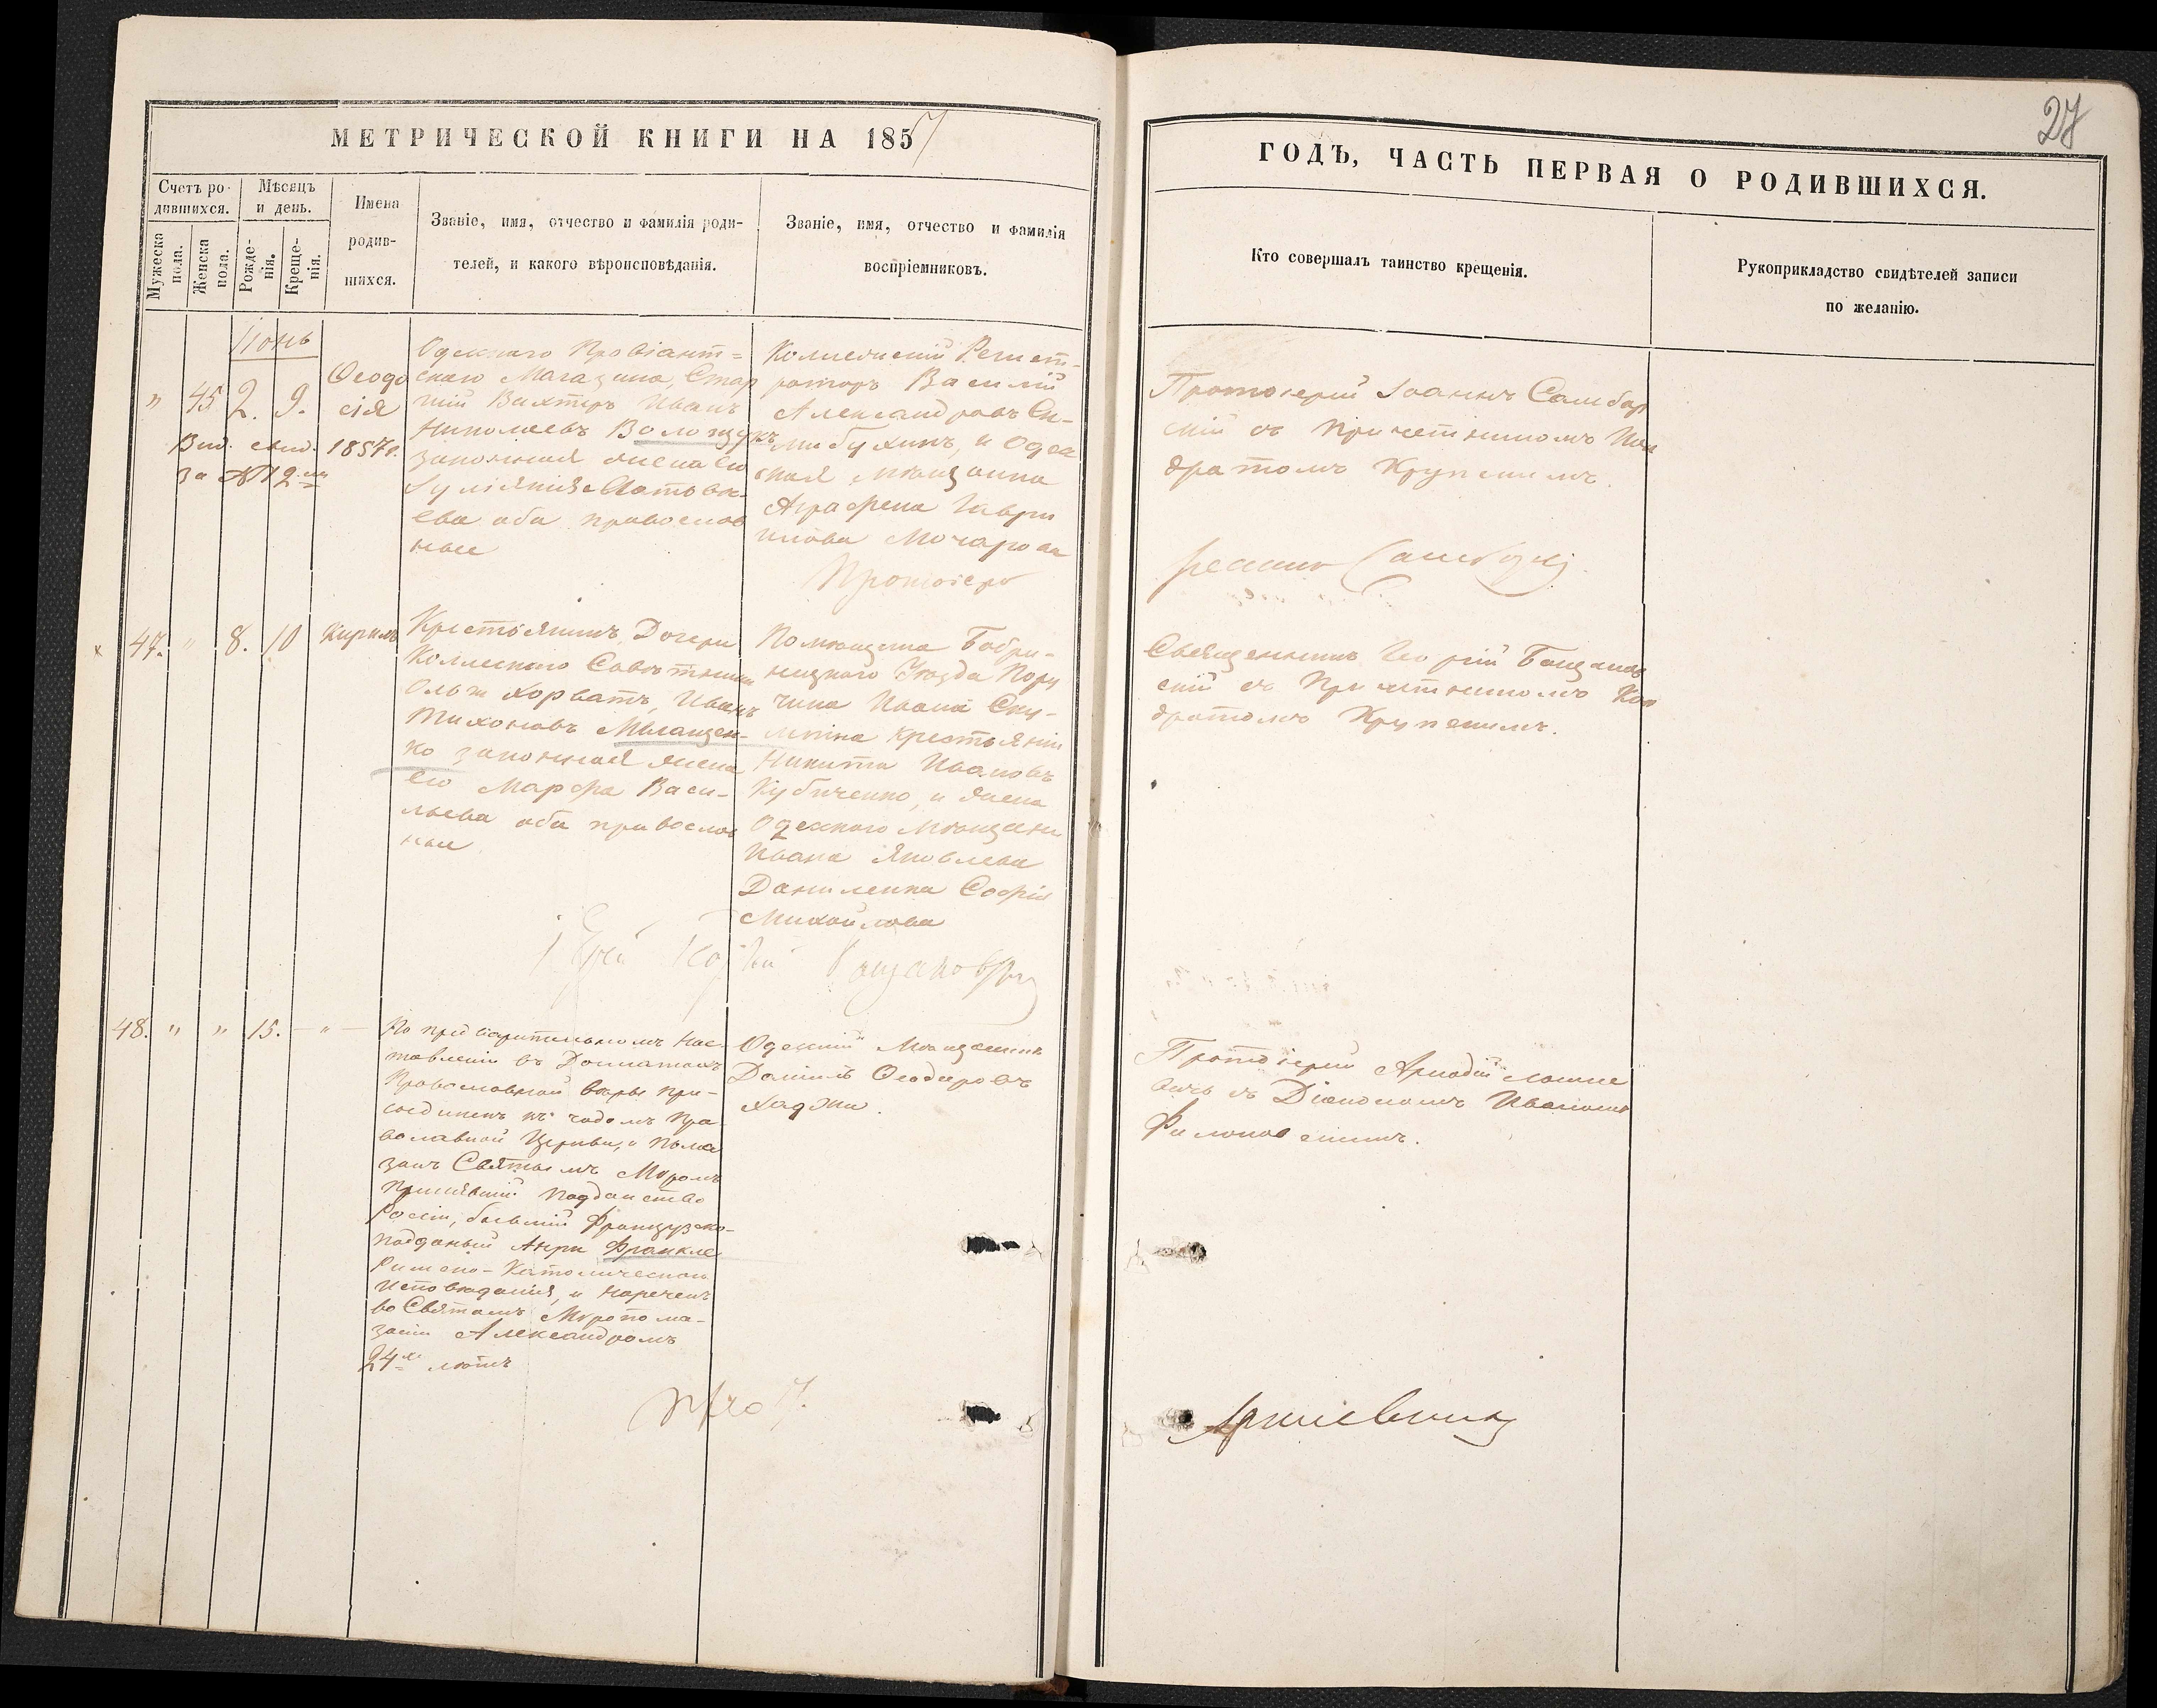 27
МЕТРИЧЕСКОЙ КНИГИ НА 1857
ГОДЪ, ЧАСТЬ ПЕРВАЯ О РОДИВШИХСЯ.
Счетъ ро-
дившихся.
Мужеска
пола.
Женска
пола.
Мѣсяцъ
и день.
Рожде-
нія.
Креще-
нія.
Имена
родив-
шихся.
Званіе, имя, отчество и фамилія роди-
телей, и какого вѣроисповѣданія.
Званіе, имя, отчество и фамилія
воспріемниковъ.
Кто совершалъ таинство крещенія.
Рукоприкладство свидѣтелей записи
по желанію.
Іюнь
" 45 2. 9.
Ѳеодо
сія
Выд. свид. 1857 г.
за № 12
Одескаго Провіант=
скаго Магазина, Стар
шій Вахтеръ Иванъ
Николаевъ Волощукъ
законная жена его
Іуліянія Матвѣ-
ева оба православ
ные
Коллежскій Регист-
раторъ Василій
Александровъ Си-
мибухинъ, и Одес
ская мѣщанка
Аграфена Гаври
илова Мочарова
Протоіерей Іоаннъ Самбор
скій съ Причетникомъ Кон
дратомъ Крупскимъ.
Протоіерей
Іоаннъ Самборскій
х 47. " 8. 10 Кирилъ
Крестьянинъ Дочери
Коллескаго Совѣтника
Ольги Хорватъ, Иванъ
Тихоновъ Мыланцен-
ко законная жена
его Марфа Васи-
льева оба православ
ные
Помѣщика Бобри-
нецкаго Уѣзда Пору
чика Ивана Ску-
Крестьянин
Никита Ивановъ
Кубиченко, и жена
Одескаго Мѣщани
Ивана Яковлева
Даниленка Софія
Михайлова
Священникъ Георгій Бощанов
скій съ Причетникомъ Кон
дратомъ Крупскимъ.
48. " " 15. — " —
По предварительномъ Нас-
тавленіи въ Догматахъ
Православной вѣры при-
соединенъ къ чадамъ Пра
вославной Церкви, и Пома
занъ Святымъ Мѵромъ
Принявшій Подданство
Росіи, бывшій Французско-
подданый Анри Франкле
Римско-Католическаго
Исповѣданія, и нареченъ
во Святомъ Мѵропома-
заніи Александромъ
24хъ лѣтъ
Одескій Мѣщанинъ
Даніилъ Ѳеодоровъ
Хаджи.
Протоіерей Аркадій
вичь съ Діакономъ Иваномъ
Филоновскимъ.